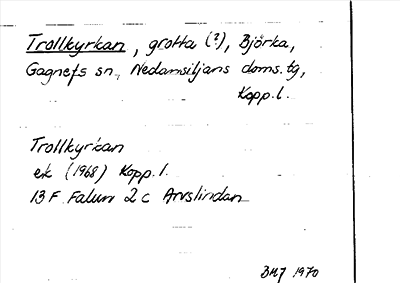 Trollkyrkan, grotta (?), Björka,
Gagnefs sn., Nedansiljans doms. tg,
Kopp. l.
Trollkyrkan
ek (1968) Kopp. l.
13 F Falun 2 c Arvslindan
BMJ 1970